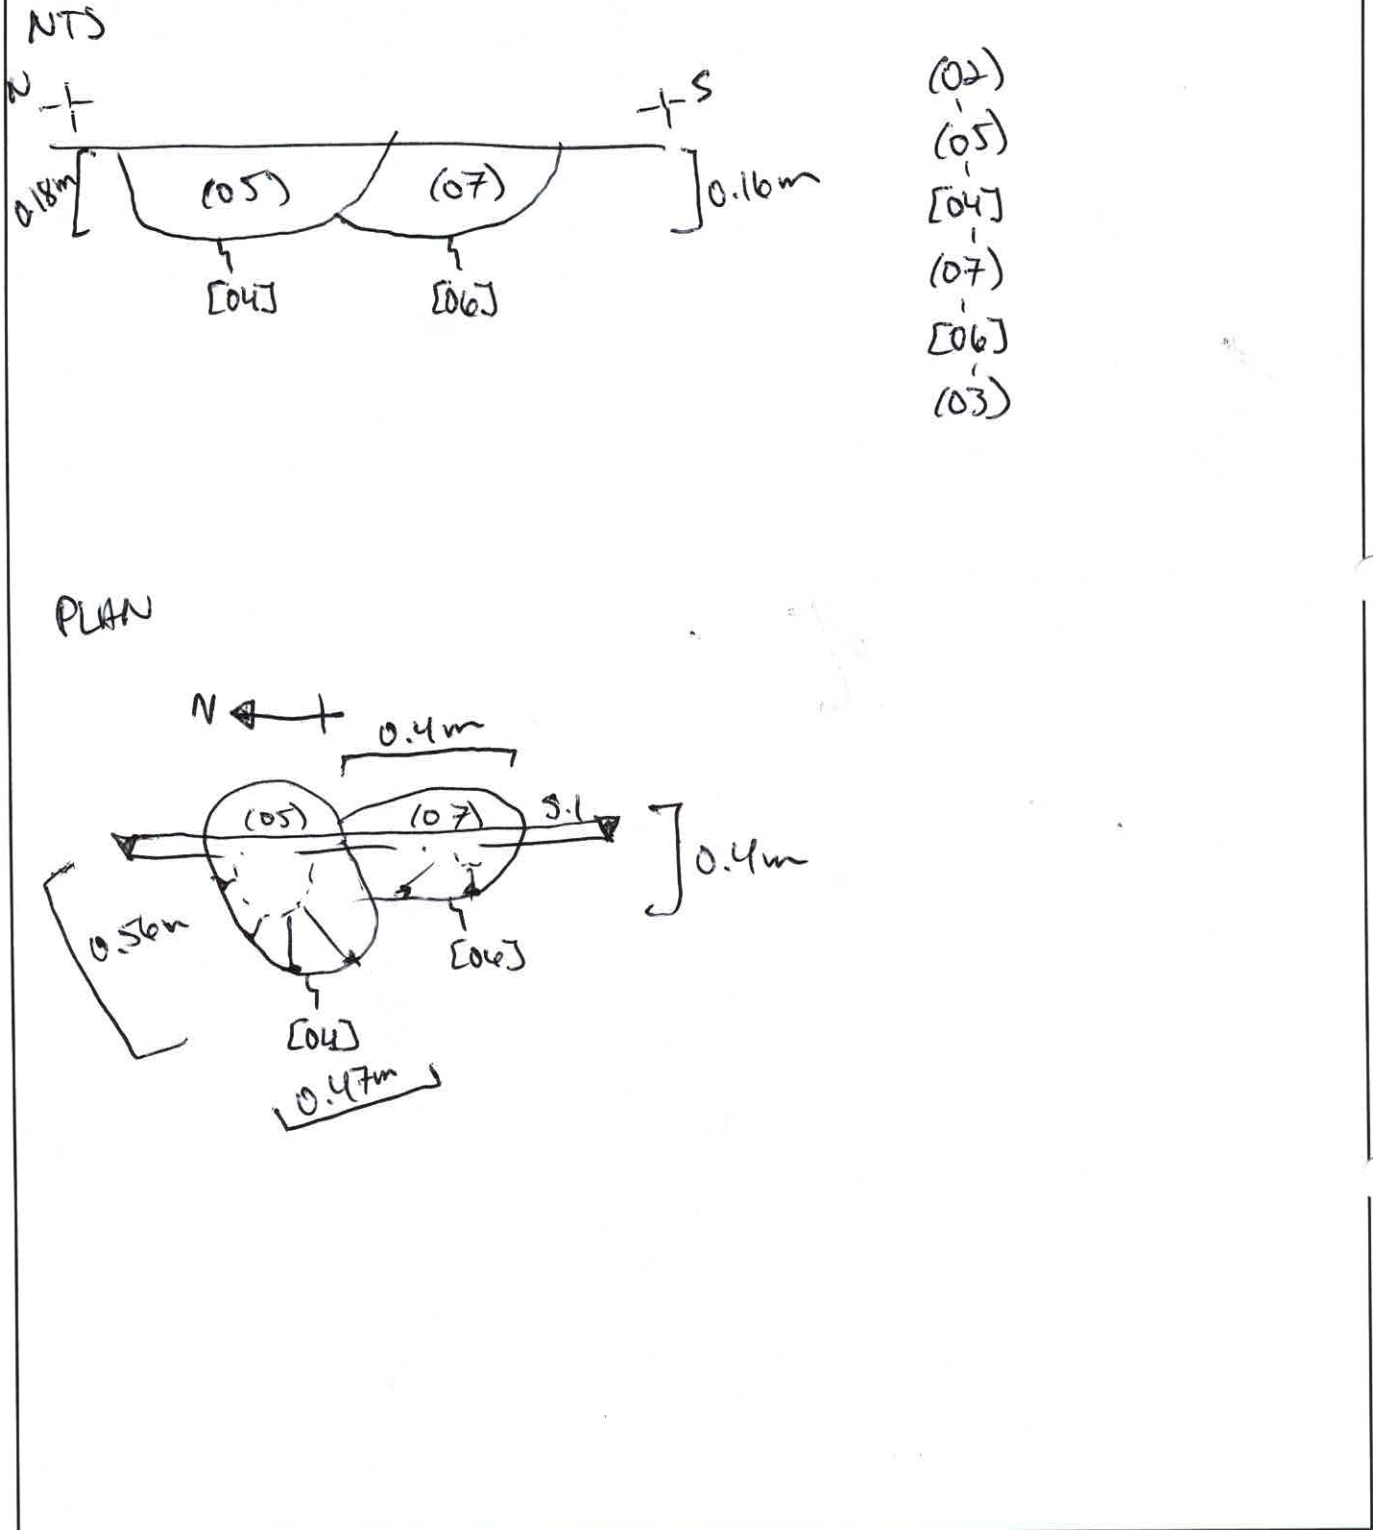 NTS
N
S
(05)
(07)
0.18m
0.16m
[04]
[06]
(02)
(05)
[04]
(07)
[06]
(03)
PLAN
N
0.4m
(05)
(07)
S.1
0.4m
0.56m
[06]
[04]
0.47m